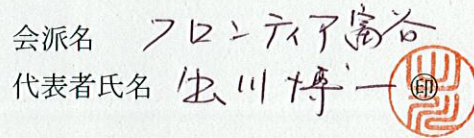 会派名 フロンティア富谷
代表者氏名 出川博一 ㊞